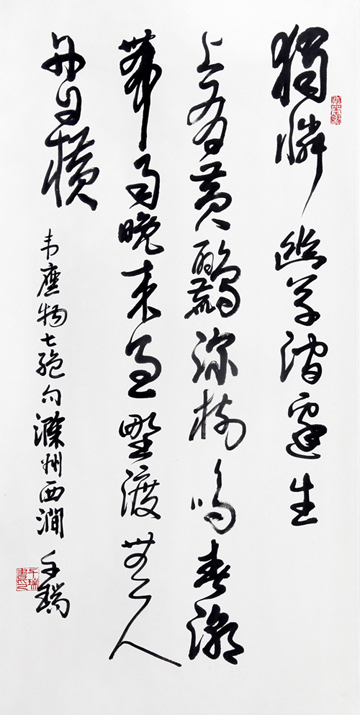 獨憐幽草澗邊生
上有黃鸝深樹鳴春潮
帶雨晚來急野渡無人
舟自橫
韦應物七絕句滁州西澗